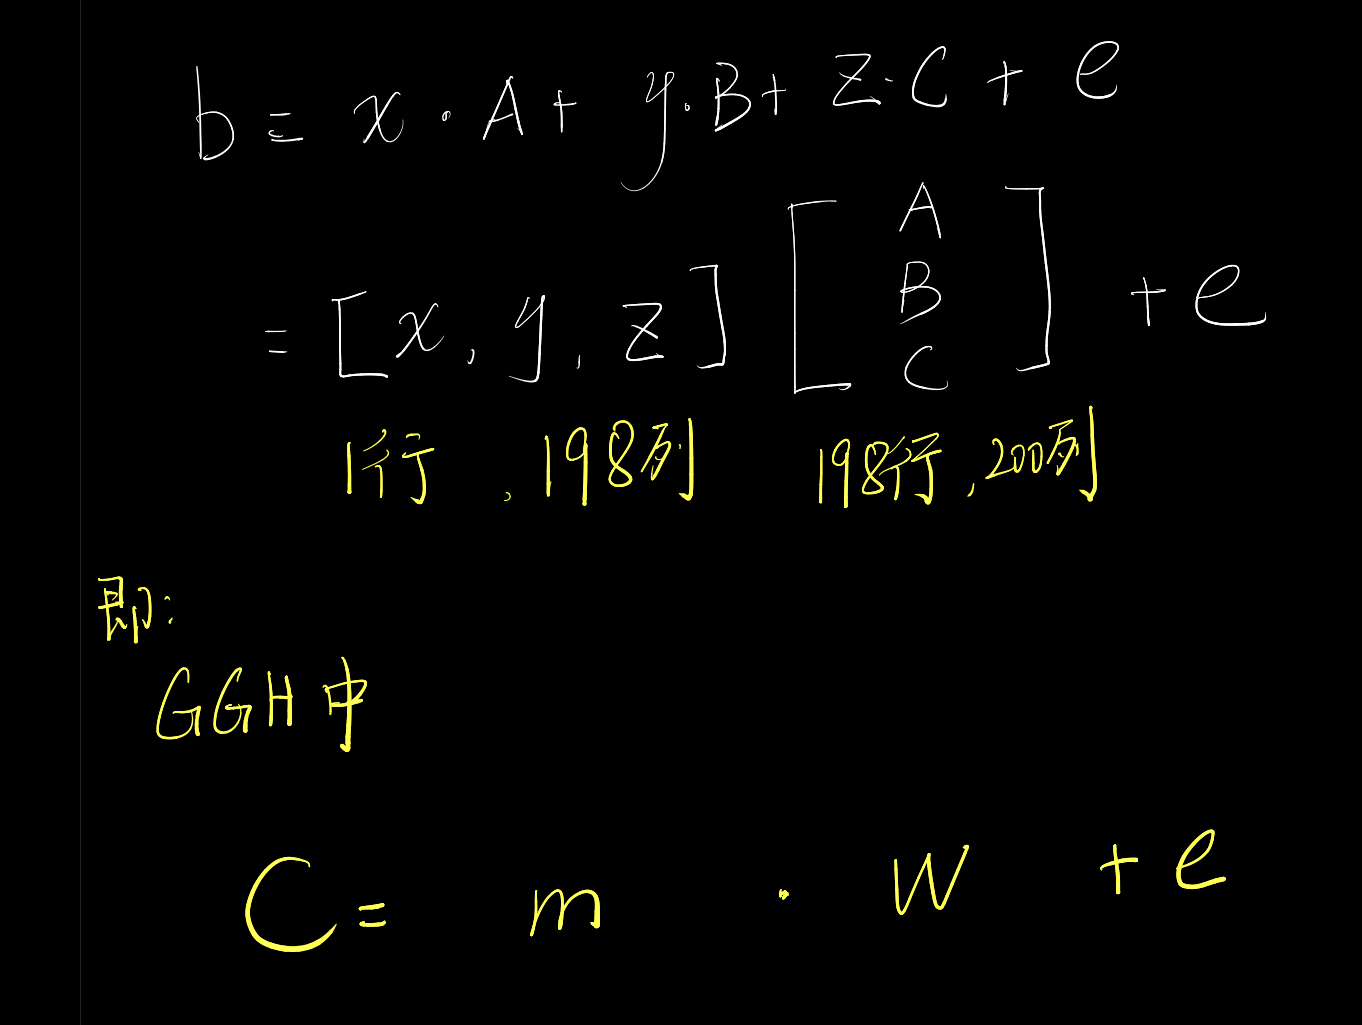 b = x · A + y · B + z · C + e
= [x, y, z] [A B C] + e
1行, 198列 198行, 200列
即:
GGH中
C = m · W + e